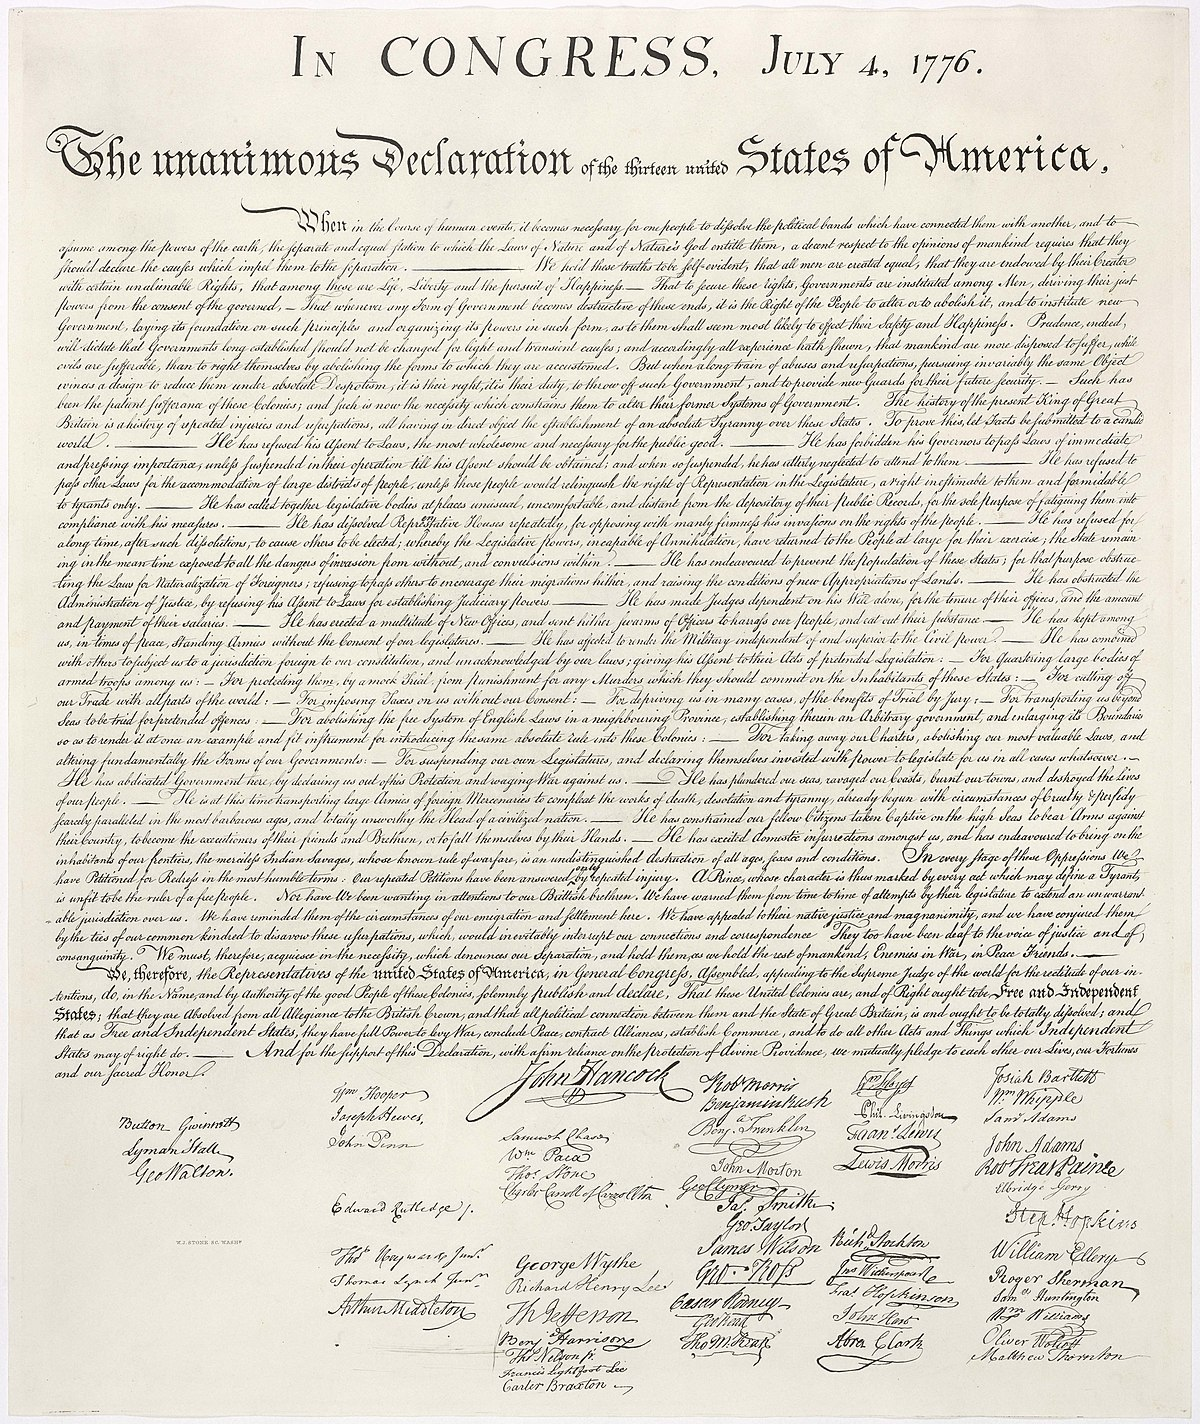 In CONGRESS, July 4, 1776.
The unanimous Declaration of the thirteen united States of America,
When in the Course of human events, it becomes necessary for one people to dissolve the political bands which have connected them with another, and to
assume among the powers of the earth, the separate and equal station to which the Laws of Nature and of Nature's God entitle them, a decent respect to the opinions of mankind requires that they
should declare the causes which impel them to the separation. — We hold these truths to be self-evident, that all men are created equal, that they are endowed by their Creator
with certain unalienable Rights, that among these are Life, Liberty and the pursuit of Happiness. — That to secure these rights, Governments are instituted among Men, deriving their just
powers from the consent of the governed, — That whenever any Form of Government becomes destructive of these ends, it is the Right of the People to alter or to abolish it, and to institute new
Government, laying its foundation on such principles and organizing its powers in such form, as to them shall seem most likely to effect their Safety and Happiness. Prudence, indeed,
will dictate that Governments long established should not be changed for light and transient causes; and accordingly all experience hath shewn, that mankind are more disposed to suffer, while
evils are sufferable, than to right themselves by abolishing the forms to which they are accustomed. But when a long train of abuses and usurpations, pursuing invariably the same Object
evinces a design to reduce them under absolute Despotism, it is their right, it is their duty, to throw off such Government, and to provide new Guards for their future security. — Such has
been the patient sufferance of these Colonies; and such is now the necessity which constrains them to alter their former Systems of Government. The history of the present King of Great
Britain is a history of repeated injuries and usurpations, all having in direct object the establishment of an absolute Tyranny over these States. To prove this, let Facts be submitted to a candid
world. — He has refused his Assent to Laws, the most wholesome and necessary for the public good. — He has forbidden his Governors to pass Laws of immediate
and pressing importance, unless suspended in their operation till his Assent should be obtained; and when so suspended, he has utterly neglected to attend to them. — He has refused to
pass other Laws for the accommodation of large districts of people, unless those people would relinquish the right of Representation in the Legislature, a right inestimable to them and formidable
to tyrants only. — He has called together legislative bodies at places unusual, uncomfortable, and distant from the depository of their Public Records, for the sole purpose of fatiguing them into
compliance with his measures. — He has dissolved Representative Houses repeatedly, for opposing with manly firmness his invasions on the rights of the people. — He has refused for
a long time, after such dissolutions, to cause others to be elected; whereby the Legislative powers, incapable of Annihilation, have returned to the People at large for their exercise; the State remain-
ing in the mean time exposed to all the dangers of invasion from without, and convulsions within. — He has endeavoured to prevent the population of these States; for that purpose obstruc-
ting the Laws for Naturalization of Foreigners; refusing to pass others to encourage their migrations hither, and raising the conditions of new Appropriations of Lands. — He has obstructed the
Administration of Justice, by refusing his Assent to Laws for establishing Judiciary powers. — He has made Judges dependent on his Will alone, for the tenure of their offices, and the amount
and payment of their salaries. — He has erected a multitude of New Offices, and sent hither swarms of Officers to harrass our people, and eat out their substance. — He has kept among
us, in times of peace, Standing Armies without the Consent of our legislatures. — He has affected to render the Military independent of and superior to the Civil power. — He has combined
with others to subject us to a jurisdiction foreign to our constitution, and unacknowledged by our laws; giving his Assent to their Acts of pretended Legislation: — For Quartering large bodies of
armed troops among us: — For protecting them, by a mock Trial, from punishment for any Murders which they should commit on the Inhabitants of these States: — For cutting off
our Trade with all parts of the world: — For imposing Taxes on us without our Consent: — For depriving us in many cases, of the benefits of Trial by Jury: — For transporting us beyond
Seas to be tried for pretended offences: — For abolishing the free System of English Laws in a neighbouring Province, establishing therein an Arbitrary government, and enlarging its Boundaries
so as to render it at once an example and fit instrument for introducing the same absolute rule into these Colonies: — For taking away our Charters, abolishing our most valuable Laws, and
altering fundamentally the Forms of our Governments: — For suspending our own Legislatures, and declaring themselves invested with power to legislate for us in all cases whatsoever. —
He has abdicated Government here, by declaring us out of his Protection and waging War against us. — He has plundered our seas, ravaged our Coasts, burnt our towns, and destroyed the Lives
of our people. — He is at this time transporting large Armies of foreign Mercenaries to compleat the works of death, desolation and tyranny, already begun with circumstances of Cruelty & perfidy
scarcely paralleled in the most barbarous ages, and totally unworthy the Head of a civilized nation. — He has constrained our fellow Citizens taken Captive on the high Seas to bear Arms against
their Country, to become the executioners of their friends and Brethren, or to fall themselves by their Hands. — He has excited domestic insurrections amongst us, and has endeavoured to bring on the
inhabitants of our frontiers, the merciless Indian Savages, whose known rule of warfare, is an undistinguished destruction of all ages, sexes and conditions. In every stage of these Oppressions We
have Petitioned for Redress in the most humble terms: Our repeated Petitions have been answered only by repeated injury. A Prince, whose character is thus marked by every act which may define a Tyrant,
is unfit to be the ruler of a free people. Nor have We been wanting in attentions to our Brittish brethren. We have warned them from time to time of attempts by their legislature to extend an unwarrant-
able jurisdiction over us. We have reminded them of the circumstances of our emigration and settlement here. We have appealed to their native justice and magnanimity, and we have conjured them
by the ties of our common kindred to disavow these usurpations, which, would inevitably interrupt our connections and correspondence. They too have been deaf to the voice of justice and of
consanguinity. We must, therefore, acquiesce in the necessity, which denounces our Separation, and hold them, as we hold the rest of mankind, Enemies in War, in Peace Friends. —
We, therefore, the Representatives of the united States of America, in General Congress, Assembled, appealing to the Supreme Judge of the world for the rectitude of our in-
tentions, do, in the Name, and by Authority of the good People of these Colonies, solemnly publish and declare, That these United Colonies are, and of Right ought to be Free and Independent
States; that they are Absolved from all Allegiance to the British Crown, and that all political connection between them and the State of Great Britain, is and ought to be totally dissolved; and
that as Free and Independent States, they have full Power to levy War, conclude Peace, contract Alliances, establish Commerce, and to do all other Acts and Things which Independent
States may of right do. — And for the support of this Declaration, with a firm reliance on the protection of divine Providence, we mutually pledge to each other our Lives, our Fortunes
and our sacred Honor.
Button Gwinnett
Lyman Hall
Geo Walton.
W.J. STONE SC. WASHN.
Wm Hooper
Joseph Hewes,
John Penn
Edward Rutledge /.
Thos Heyward Junr.
Thomas Lynch Junr.
Arthur Middleton
John Hancock
Samuel Chase
Wm Paca
Thos. Stone
Charles Carroll of Carrollton
George Wythe
Richard Henry Lee
Th Jefferson
Benj Harrison
Thos Nelson jr.
Francis Lightfoot Lee
Carter Braxton
Robt Morris
Benjamin Rush
Benj. Franklin
John Morton
Geo Clymer
Jas. Smith
Geo. Taylor
James Wilson
Geo. Ross
Caesar Rodney
Geo Read
Tho M:Kean
Wm Floyd
Phil. Livingston
Frans. Lewis
Lewis Morris
Richd. Stockton
Jno Witherspoon
Fras. Hopkinson
John Hart
Abra Clark
Josiah Bartlett
Wm. Whipple
Saml Adams
John Adams
Robt Treat Paine
Elbridge Gerry
Step. Hopkins
William Ellery
Roger Sherman
Saml Huntington
Wm. Williams
Oliver Wolcott
Matthew Thornton